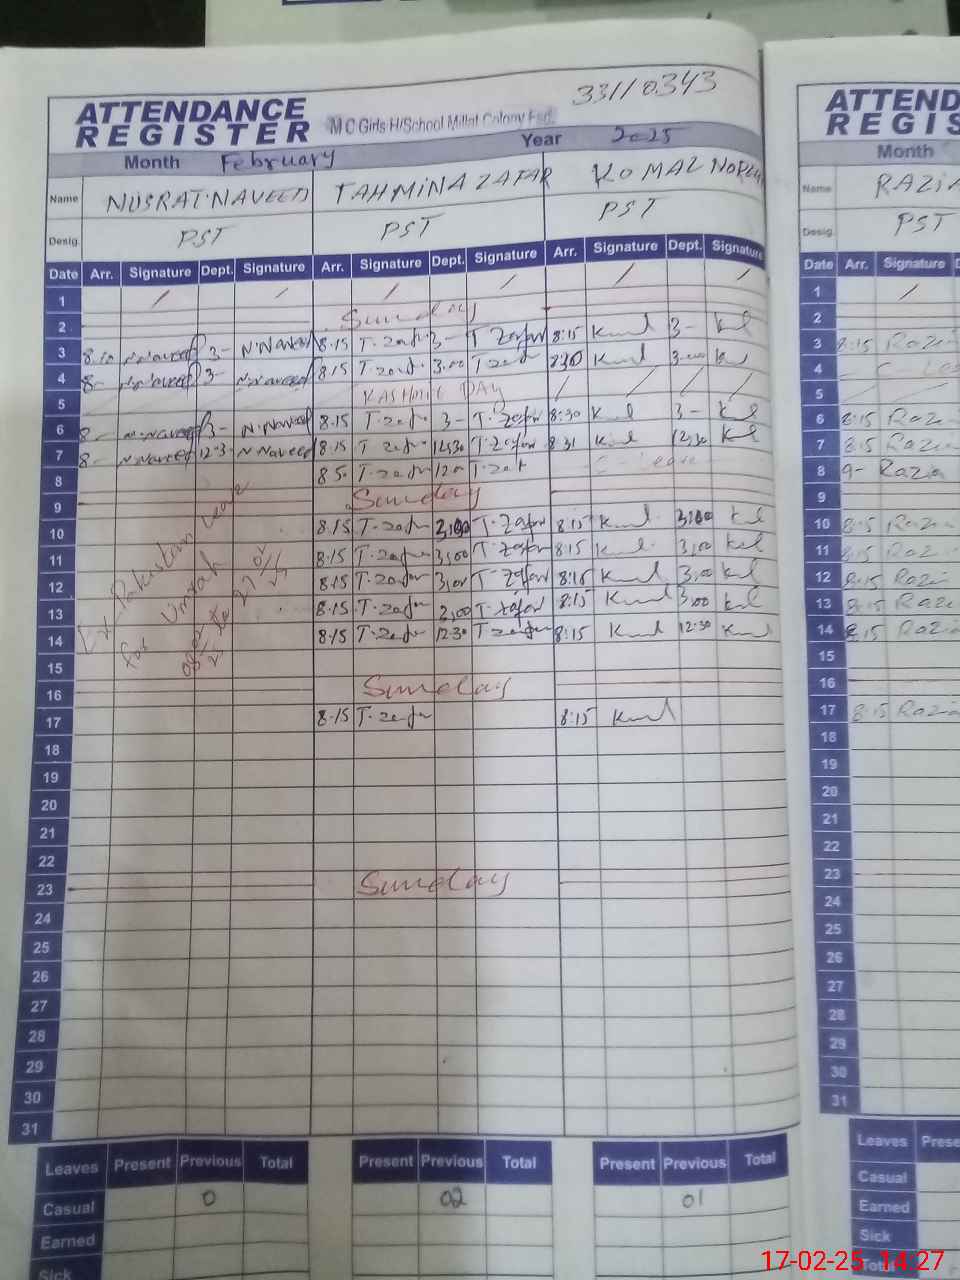 33110343
ATTENDANCE
REGISTER
M C Girls H/School Millat Colony Fsd.
Month February Year 2025
Name NUSRAT.NAVEED TAHMINA ZAFAR KOMAL
Desig. PST PST PST
Date Arr. Signature Dept. Signature Arr. Signature Dept. Signature Arr. Signature Dept. Signature
1 / / / / / /
2 Sunday
3 8:10 N.Naveed 3- N.Naveed 8.15 T.Zafar 3- T Zafar 8:15 3-
4 8- N.Naveed 3- N.Naveed 8.15 T.Zafar 3.00 T.Zafar 8:30
5 KASHMIR DAY / / / /
6 8- N.Naveed 3- N.Naveed 8.15 T.Zafar 3- T.Zafar 8:30 3-
7 8- N.Naveed N.Naveed 8.15 T Zafar 12:30 T.Zafar 8:31 12:30
8 T.Zafar C-Leave
9 Sunday
10 8.15 T.Zafar 3,00 T.Zafar 8:15 3,00
11 8:15 T.Zafar 3,00 T.Zafar 8:15 3,00
12 8:15 T.Zafar 3,00 T-Zafar 8:15 3,00
13 8:15 T.Zafar 3,00 T.Zafar 8:15 3,00
14 8:15 T.Zafar 12:30 T Zafar 8:15 12:30
Ex Pakistan Leave
for Umrah
to
15
16 Sunday
17 8.15 T.Zafar 8:15
18
19
20
21
22
23 Sunday
24
25
26
27
28
29
30
31
Leaves Present Previous Total Present Previous Total Present Previous Total
Casual 0 02 01
Earned
Sick
ATTEND
REGIS
Month
Name RAZIA
Desig. PST
Date Arr. Signature
1 /
2
3 8:15 Razia
4
5 /
6 8:15 Razia
7 8:15 Razia
8 9- Razia
9
10 8:15 Razia
11 8:15 Razia
12 8:15 Razia
13 8:15 Razia
14 8:15 Razia
15
16
17 8:15 Razia
18
19
20
21
22
23
24
25
26
27
28
29
30
31
Leaves Prese
Casual
Earned
Sick
Total
17-02-25 14:27